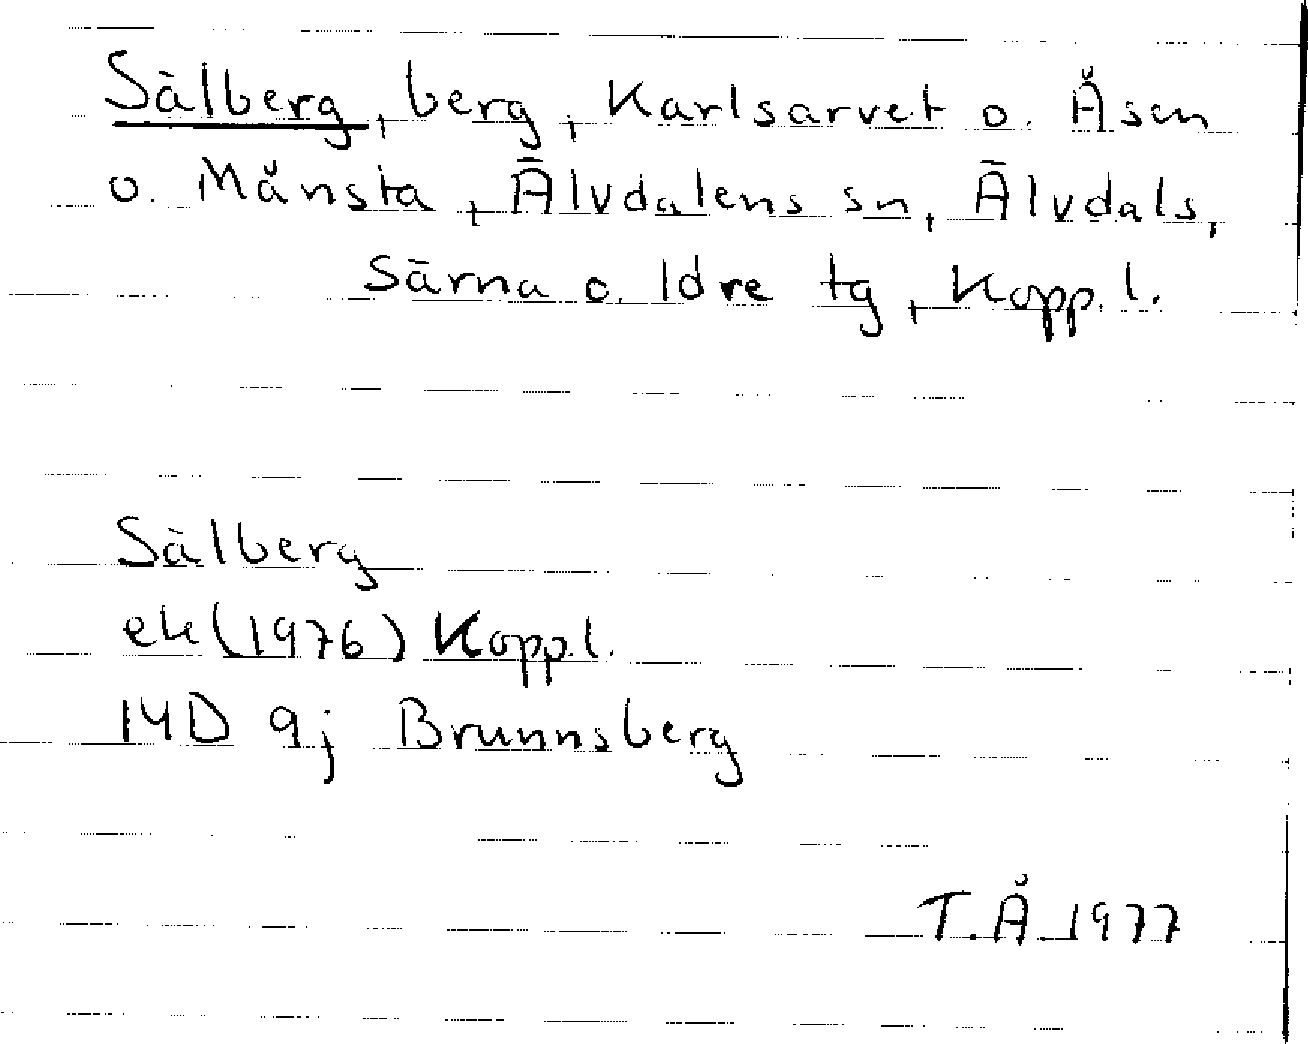 Sälberg, berg, Karlsarvet o. Åsen
o. Månsta, Älvdalens sn, Älvdals,
Särna o. Idre tg, Kopp. l.
Sälberg
ek (1976) Kopp.l.
14D 9j Brunnsberg
T.Å 1977